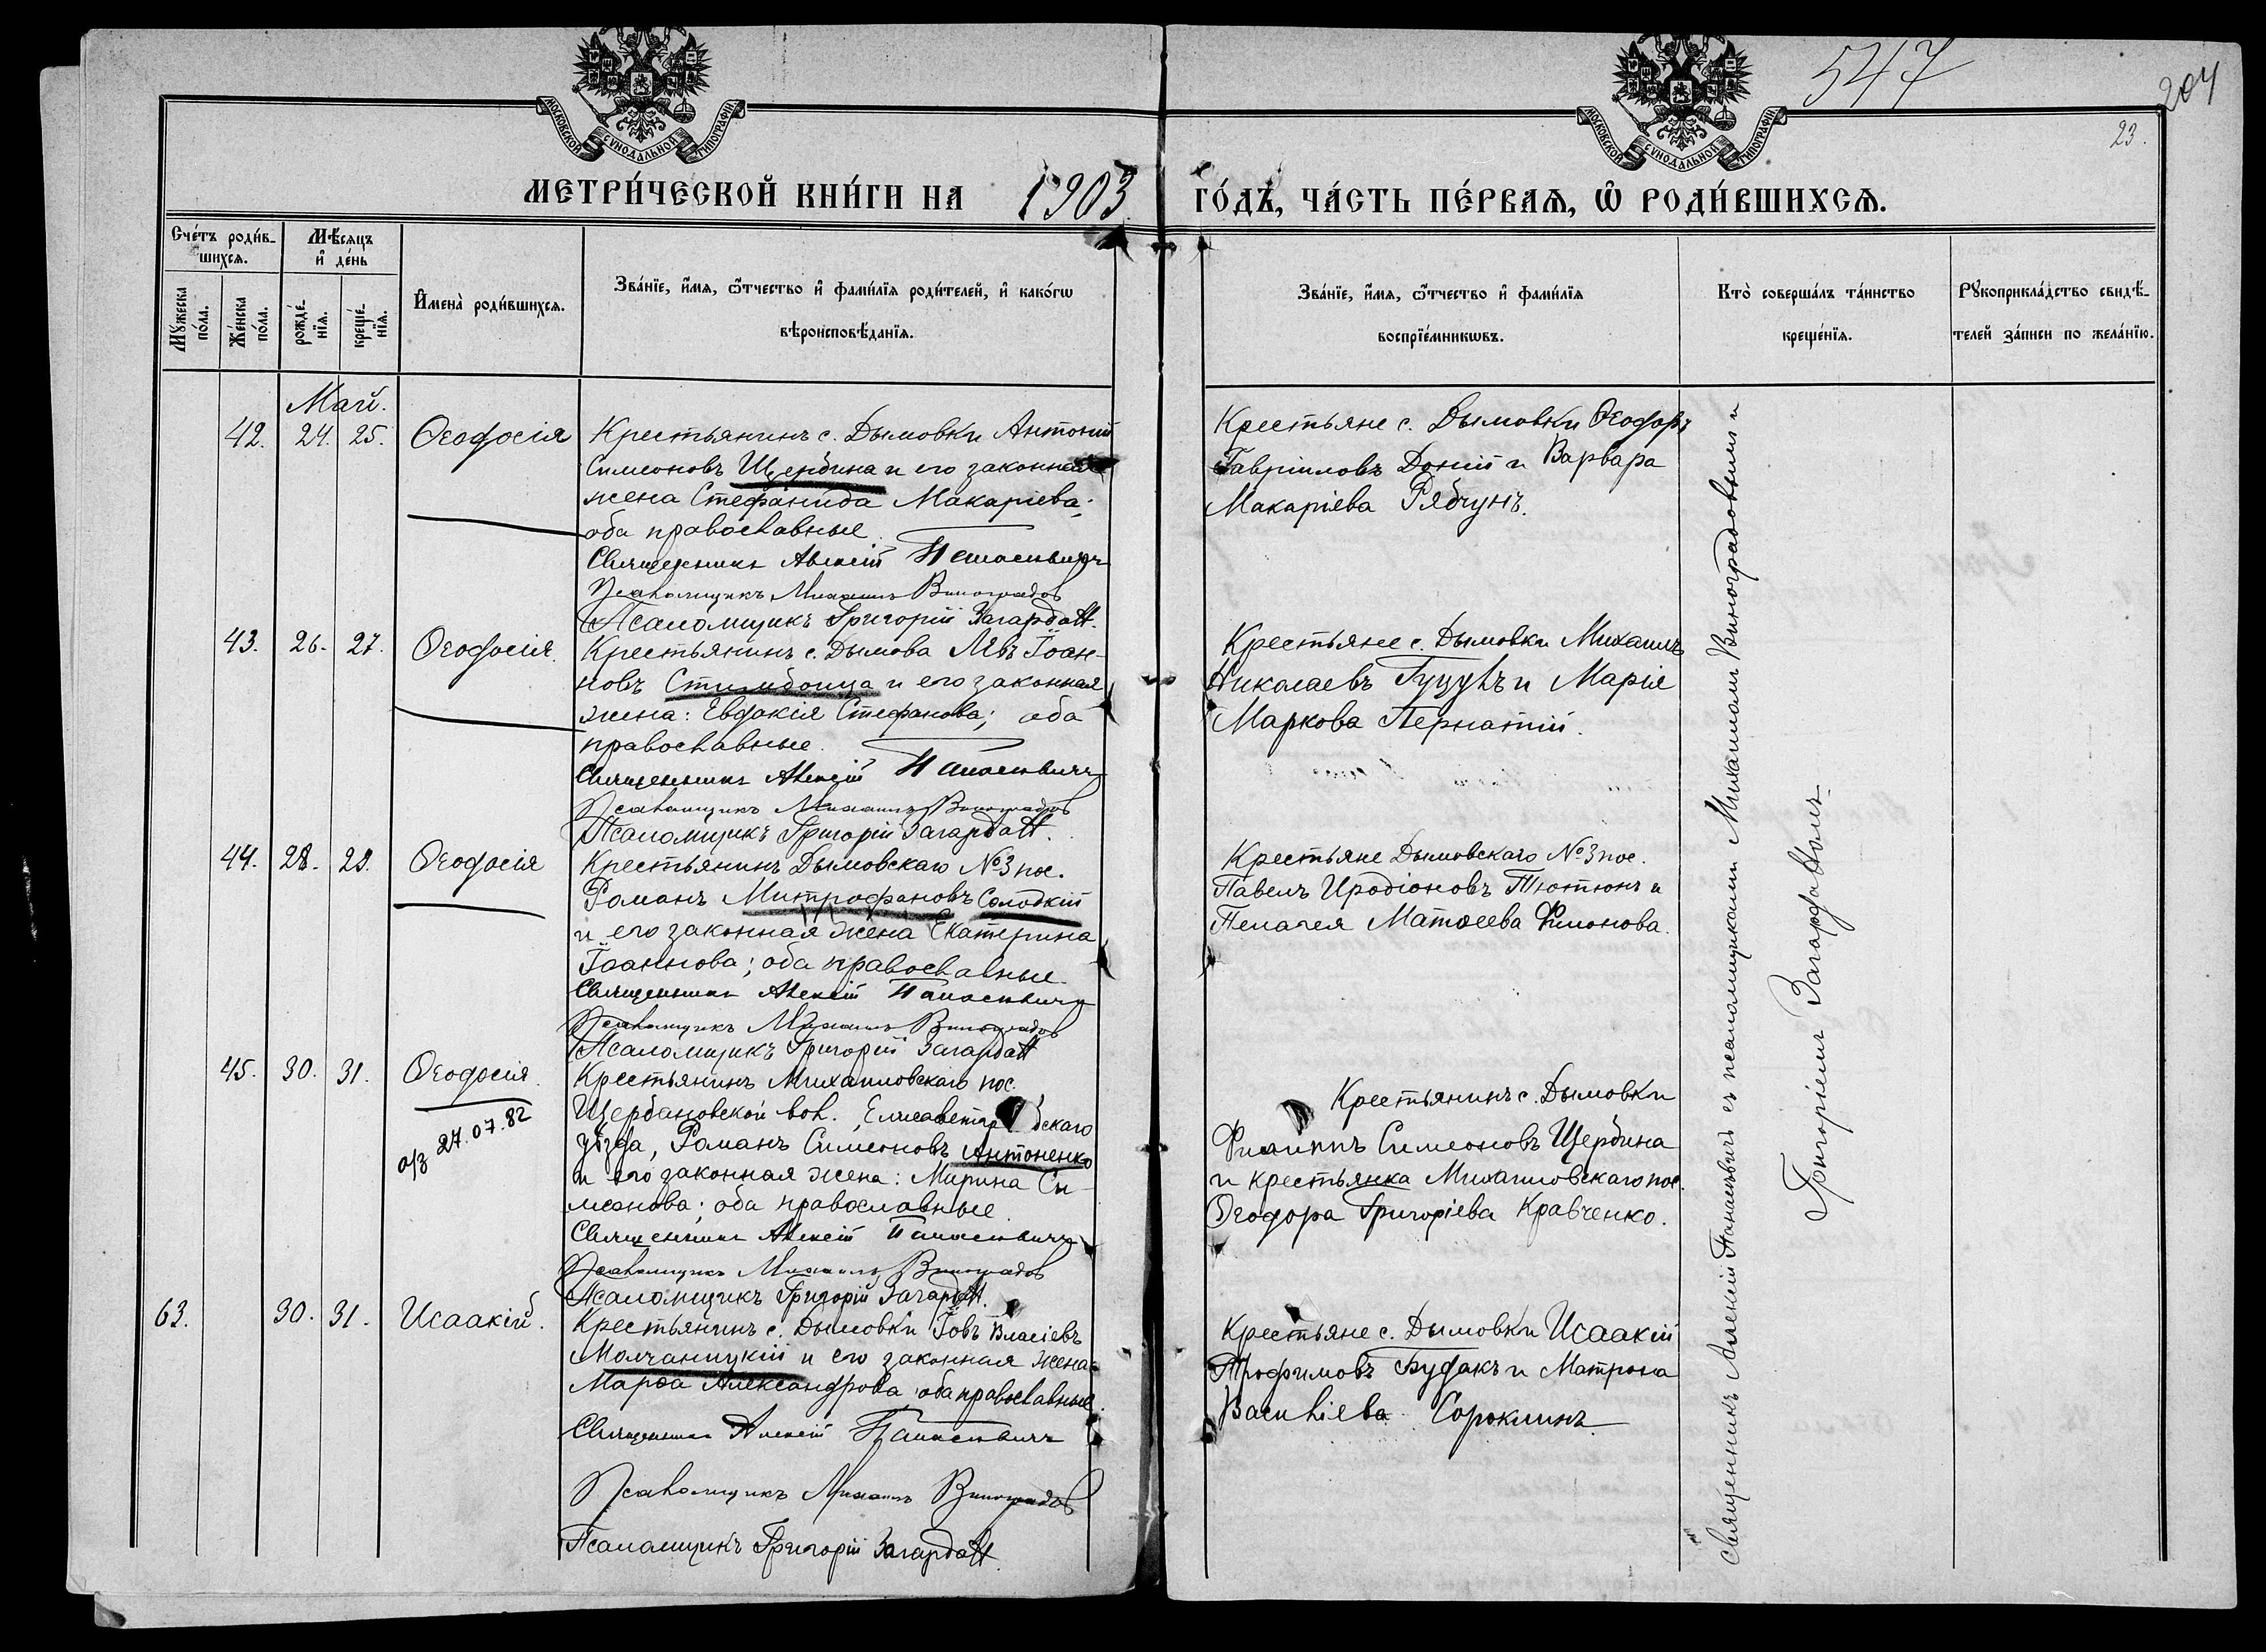 547
204
23.
МОСКОВСКОЙ СѴНОДАЛЬНОЙ ТИПОГРАФІИ
МОСКОВСКОЙ СѴНОДАЛЬНОЙ ТИПОГРАФІИ
МЕТРИ́ЧЕСКОЙ КНИ́ГИ НА 1903 ГО́ДЪ, ЧА́СТЬ ПЕ́РВАѦ, Ѡ҆ РОДИ́ВШИХСѦ.
Сче́тъ роди́в-
шихсѧ.
Мꙋ́жеска
по́ла.
Же́нска
по́ла.
Мѣ́сѧцъ
и҆ де́нь
рожде́-
нїѧ.
креще́-
нїѧ.
И҆мена̀ роди́вшихсѧ.
Зва́нїе, и҆́мѧ, ѻ҆́тчество и҆ фами́лїѧ роди́телей, и҆ како́гѡ
вѣроисповѣ́данїѧ.
Зва́нїе, и҆́мѧ, ѻ҆́тчество и҆ фами́лїѧ
воспрїе́мникѡвъ.
Кто̀ соверша́лъ та́инство
креще́нїѧ.
Рꙋкоприкла́дство свидѣ́-
телей за́писи по жела́нїю.
Май.
42. 24. 25. Ѳеодосія
Крестьянинъ с. Дымовки Антоній
Симеоновъ Щербина и его законная
жена Стефанида Макаріева;
оба православные
Священникъ Алексій Панасевичъ
Псаломщикъ Михаилъ Виноградов
Псаломщикъ Григорій
Крестьяне с. Дымовки Ѳеодоръ
Гавріиловъ Доній и Варвара
Макаріева Рябчунъ.
43. 26. 27. Ѳеодосія.
Крестьянинъ с. Дымова Левъ Іоан-
новъ и его законная
жена: Евдокія Стефанова; оба
православные.
Священникъ Алексій Панасевичъ
Псаломщикъ Михаилъ Виноградов
Псаломщикъ Григорій
Крестьяне с. Дымовки Михаилъ
Николаевъ Гуцулъ и Марія
Маркова Пернатій.
44. 28. 29. Ѳеодосія
Крестьянинъ Дымовскаго №3 пос.
Романъ Митрофановъ Солодкій
и его законная жена Екатерина
Іоаннова; оба православные.
Священникъ Алексій Панасевичъ
Псаломщикъ Михаилъ Виноградов
Псаломщикъ Григорій
Крестьяне Дымовскаго №3 пос.
Павелъ Иродіоновъ Тютюнъ и
Пелагея Матѳеева Филонова.
45. 30. 31. Ѳеодосія.
о/з 27.07.82
Крестьянинъ Михаиловскаго пос.
Щербановской вол.
уѣзда, Романъ Симеоновъ Антоненко
и его законная жена: Марина Си-
меонова; оба православные.
Священникъ Алексій Панасевичъ
Псаломщикъ Михаилъ Виноградов
Псаломщикъ Григорій
Крестьянинъ с. Дымовки
Филиппъ Симеоновъ Щербина
и крестьянка Михаиловскаго пос.
Ѳеодора Григоріева Кравченко.
63. 30. 31. Исаакій.
Крестьянинъ с. Дымовки Іовъ Власіевъ
Молчаницкій и его законная жена
Марѳа Александрова, оба православные.
Священникъ Алексій Панасевичъ
Псаломщикъ Михаилъ Виноградов
Псаломщикъ Григорій
Крестьяне с. Дымовки Исаакій
Трофимовъ Будакъ и Матрона
Василіева Сорокминъ.
Священникъ Алексій Панасевичъ съ псаломщиками Михаиломъ Виноградовымъ и
Григоріемъ